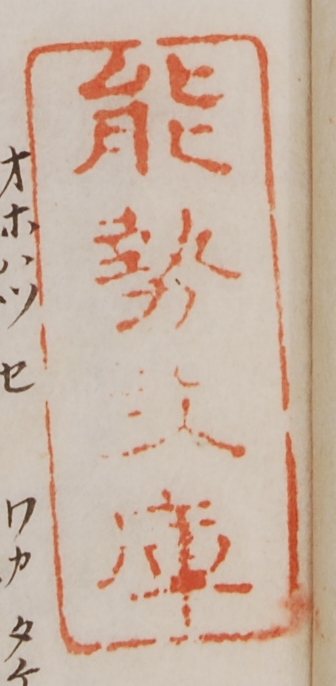 能勢文庫
オホハツセ
ワカタケ